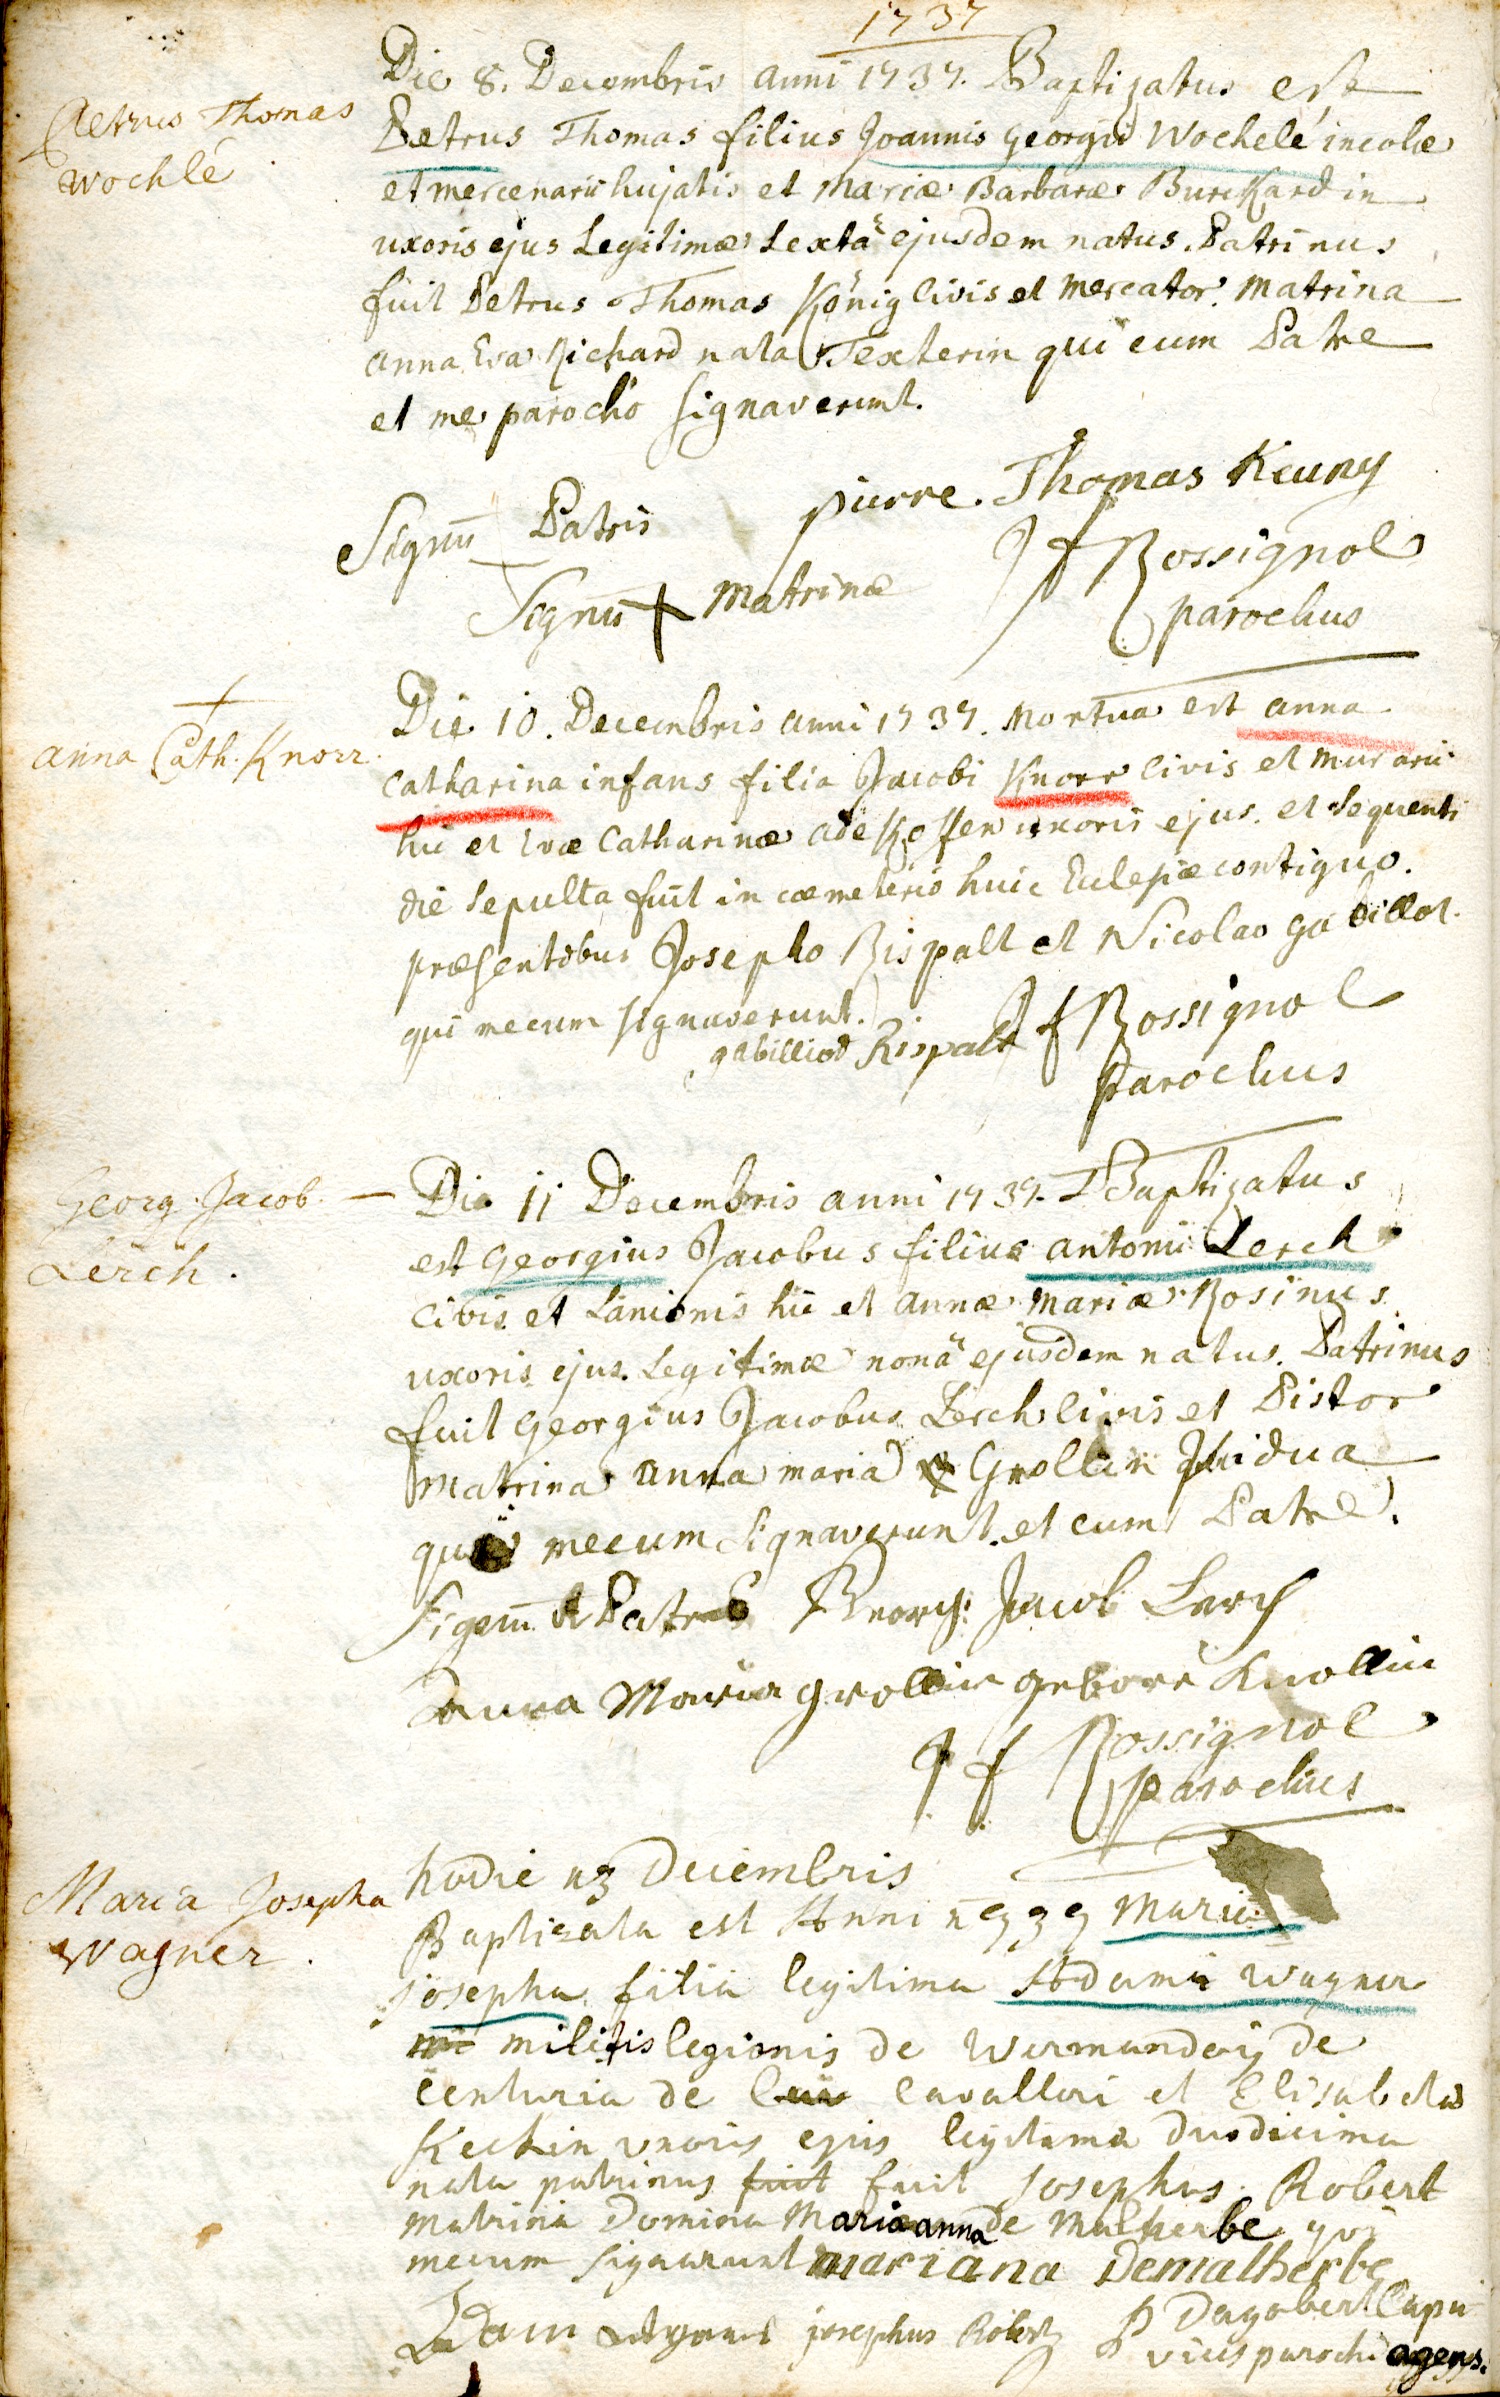 1737
Petrus Thomas
Wochlé
Die 8. Decembris anni 1737. Baptizatus est
Petrus Thomas filius Joannis Georgii Wochelé incolæ
et mercenarii hujatis et Mariæ Barbaræ Burckardin
uxoris ejus Legitimæ sextâ ejusdem natus. Patrinus
fuit Petrus Thomas König civis et mercator. Matrina
anna Eva Richard nata Texterin qui cum Patre
et me parocho signaverunt.
Signū Patris pierre. Thomas Kieuny
Signū + Matrinæ J f Rossignol
parochus
+
anna Cath. Knorr.
Die 10. Decembris anni 1737. Mortua est anna
Catharina infans filia Jacobi Knorr civis et murarii
hic et Evæ Catharinæ uxoris ejus. et sequenti
die sepulta fuit in cœmeterio huic Eclesiæ contiguo.
præsentibus Josepho Rispalt et Nicolao gabillot.
qui mecum signaverunt.
gabilliod Rispalt J f Rossignol
Parochus
Georg. Jacob. —
Lerch.
Die 11 Decembris anni 1737. Baptizatus
est Georgius Jacobus filius antonii Lerch
Civis et Lanionis hic et annæ Mariæ Rosinus
uxoris ejus Legitimæ nonâ ejusdem natus. Patrinus
fuit Georgius Jacobus Lerch civis et Pistor
Matrina anna maria Grollin Vidua
qui mecum signaverunt et cum Patre.
Signū Patris Georg: Jacob Lerch
Anna Maria grollin gebore Knollin
J f Rossignol
parochus
Maria Josepha
Wagner.
hodie 13 Decembris
Baptizata est Anni 1737 Maria
josepha filia legitima Adami Wagner
militis legionis de Wermanderij de
centuria de Cavalleri et Elisabetha
Keckin uxoris ejus legitima duodecima
nata patrinus fuit fuit josephus Robert
matrina Domina Marianna de Malherbe qui
mecum signarunt mariana Demalherbe
josephus Robert P Dagobert Capu
vices parochi agens.